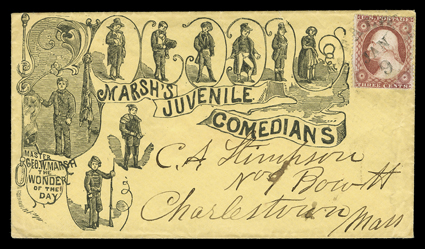 MARSH'S
JUVENILE
COMEDIANS
MASTER
GEO. W. MARSH
THE
WONDER
OF THE
DAY
U.S. POSTAGE
THREE CENTS
C. A. Stimpson
No 9 Bow St
Charlestown
Mass